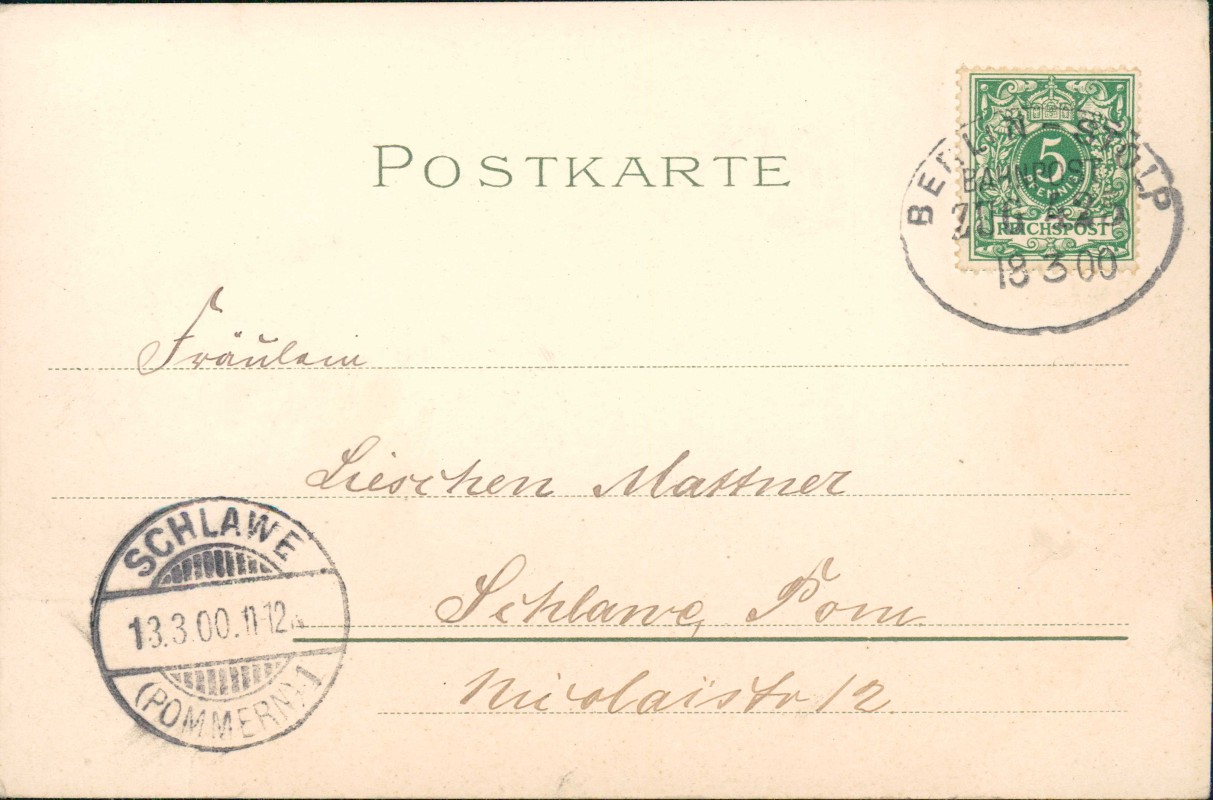 POSTKARTE
5
PFENNIG
REICHSPOST
BERLIN - STOLP
BAHNPOST
ZUG
18 3 00
Fräulein
Lieschen Mattner
Schlawe, Pom.
Nicolaistr 12.
SCHLAWE
13.3.00. 11-12
(POMMERN) 1